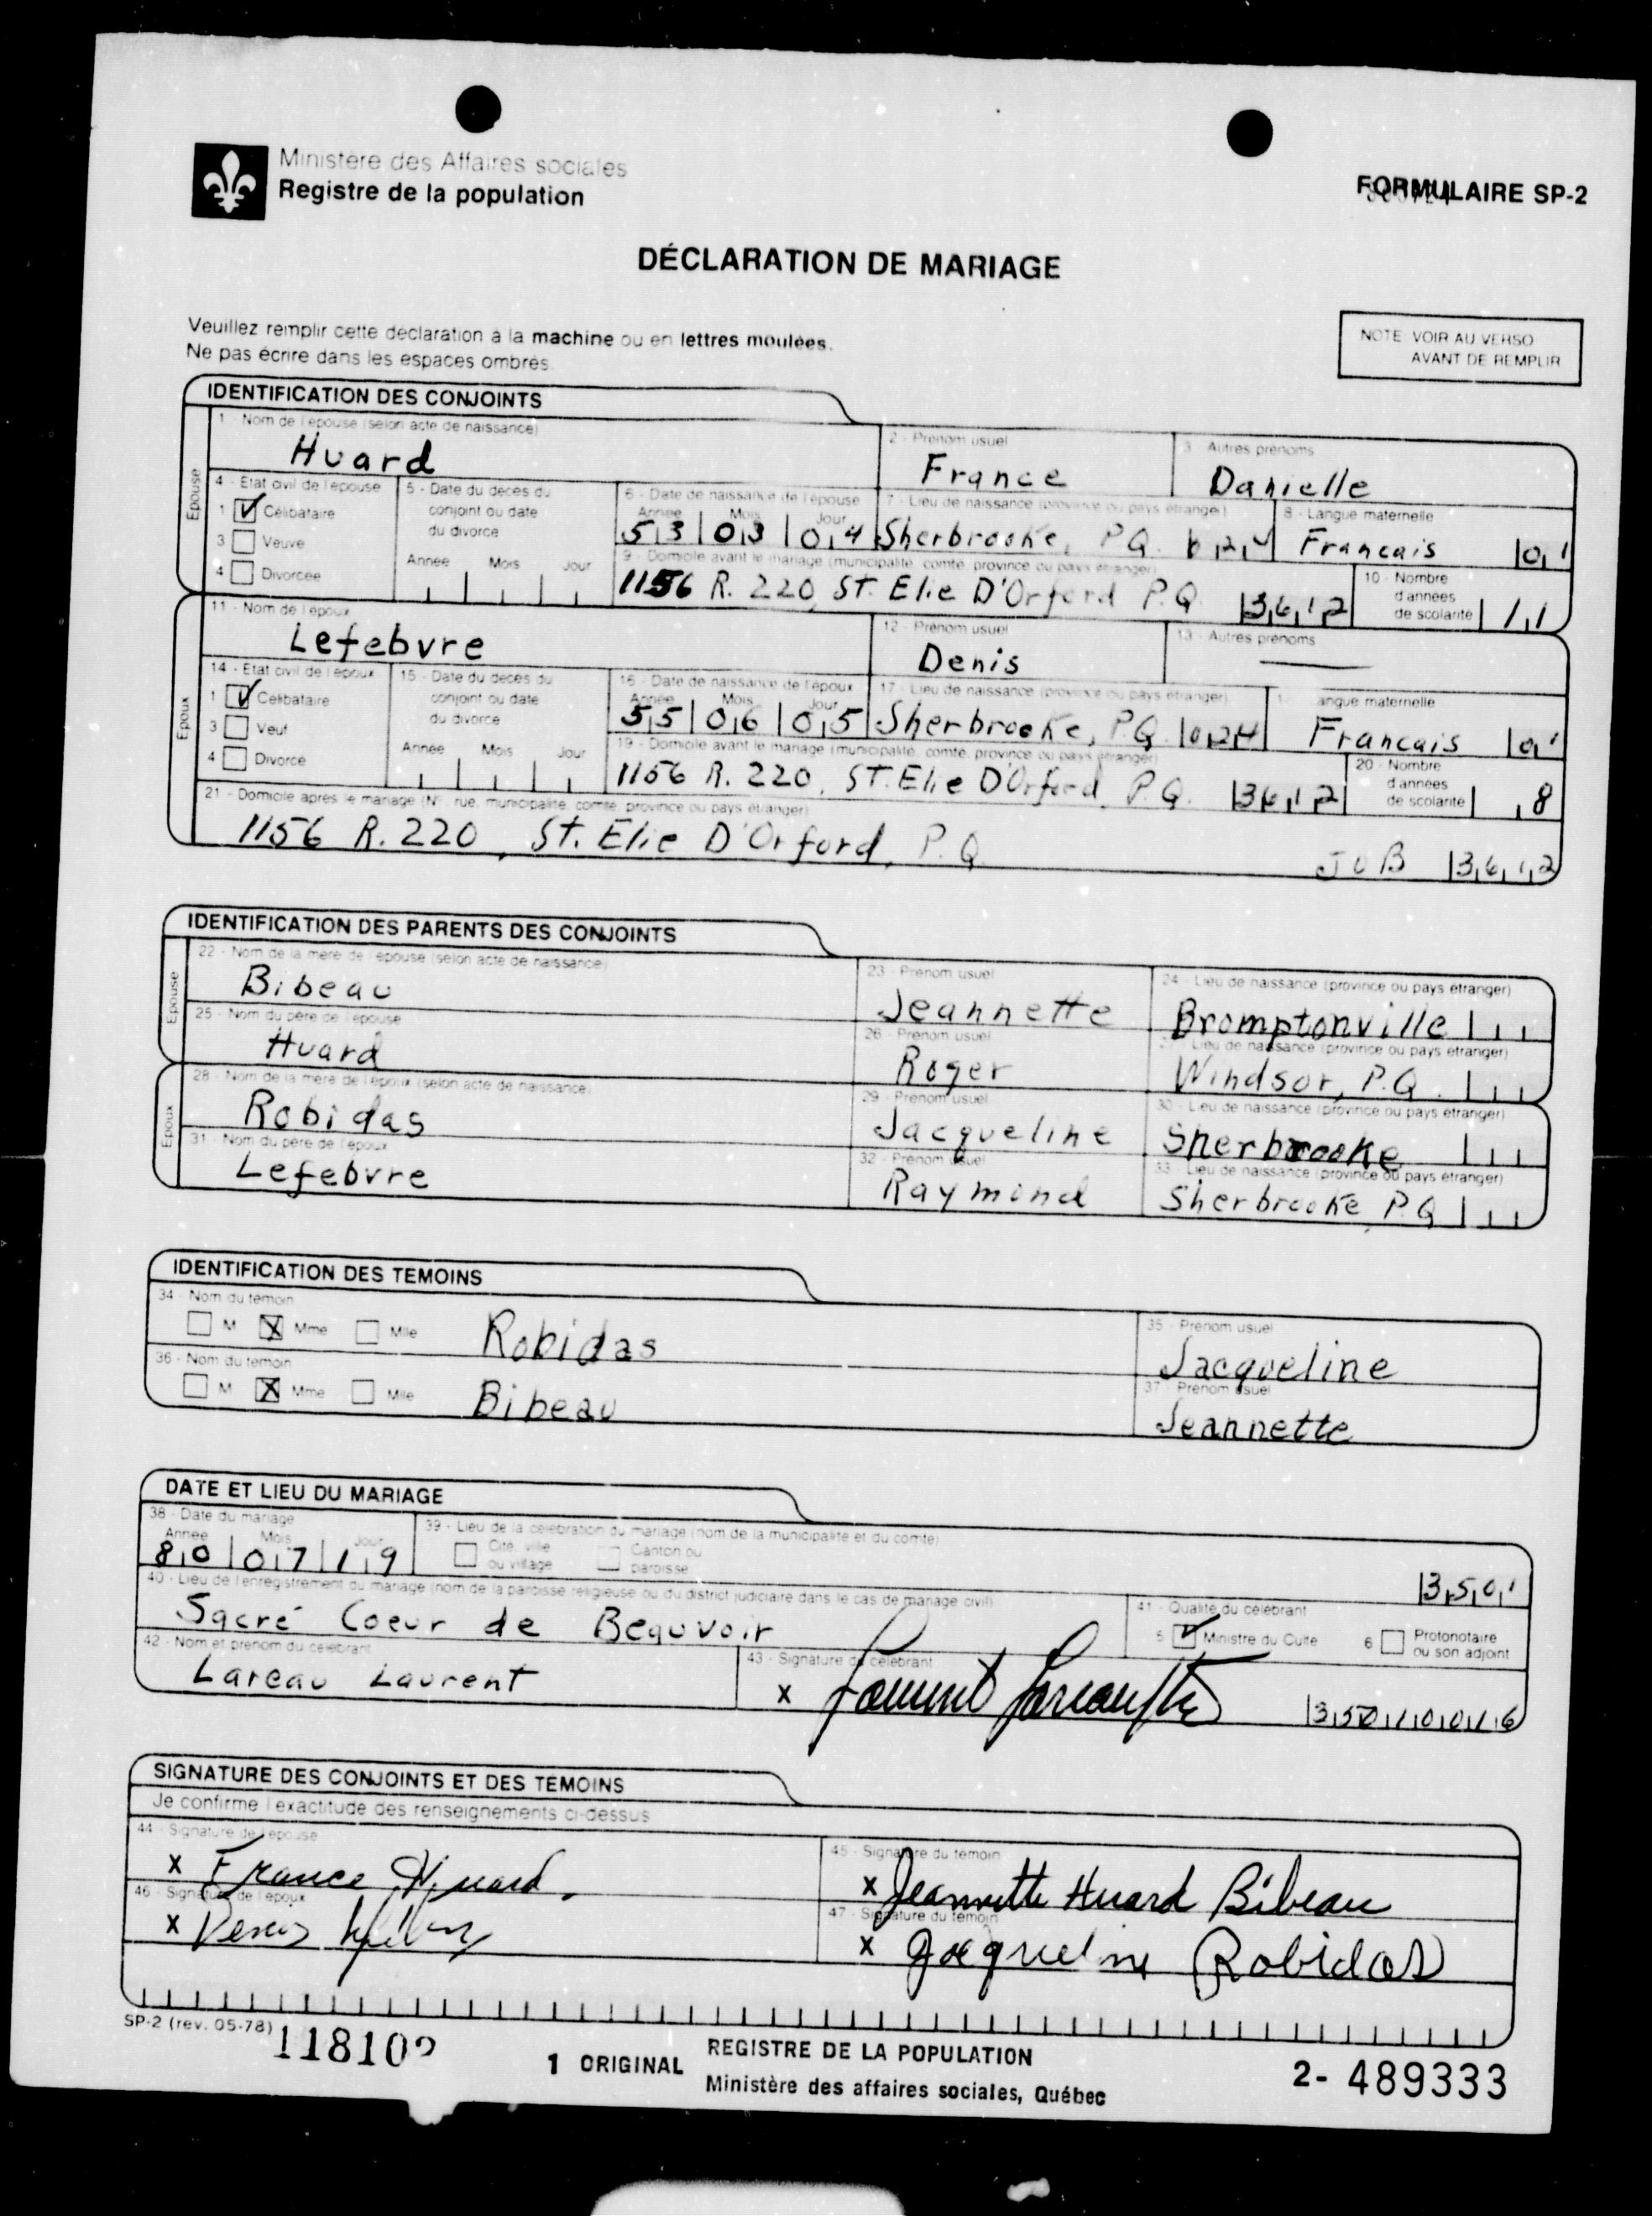 Ministère des Affaires sociales
Registre de la population
FORMULAIRE SP-2
DÉCLARATION DE MARIAGE
Veuillez remplir cette déclaration à la machine ou en lettres moulées.
Ne pas écrire dans les espaces ombrés.
NOTE: VOIR AU VERSO
AVANT DE REMPLIR
IDENTIFICATION DES CONJOINTS
Épouse
1 - Nom de l'épouse (selon acte de naissance)
Huard
2 - Prénom usuel
France
3 - Autres prénoms
Danielle
4 - État civil de l'épouse
1 ☑ Célibataire
3 ☐ Veuve
4 ☐ Divorcée
5 - Date du décès du
conjoint ou date
du divorce
Année Mois Jour
6 - Date de naissance de l'épouse
Année Mois Jour
53 03 04
7 - Lieu de naissance (province ou pays étranger)
Sherbrooke, P.Q. 024
8 - Langue maternelle
Francais 01
9 - Domicile avant le mariage (municipalité, comté, province ou pays étranger)
1156 R. 220, St. Elie D'Orford P.Q. 3612
10 - Nombre
d'années
de scolarité 11
Époux
11 - Nom de l'époux
Lefebvre
12 - Prénom usuel
Denis
13 - Autres prénoms
14 - État civil de l'époux
1 ☑ Célibataire
3 ☐ Veuf
4 ☐ Divorcé
15 - Date du décès du
conjoint ou date
du divorce
Année Mois Jour
16 - Date de naissance de l'époux
Année Mois Jour
55 06 05
17 - Lieu de naissance (province ou pays étranger)
Sherbrooke, P.Q. 024
angue maternelle
Francais 01
19 - Domicile avant le mariage (municipalité, comté, province ou pays étranger)
1156 R. 220, ST. Elie D'Orford, P.Q. 3612
20 - Nombre
d'années
de scolarité 8
21 - Domicile après le mariage (N°, rue, municipalité, comté, province ou pays étranger)
1156 R. 220, St. Elie D'Orford, P.Q.
J0B 3612
IDENTIFICATION DES PARENTS DES CONJOINTS
Épouse
22 - Nom de la mère de l'épouse (selon acte de naissance)
Bibeau
23 - Prénom usuel
Jeannette
24 - Lieu de naissance (province ou pays étranger)
Bromptonville
25 - Nom du père de l'épouse
Huard
26 - Prénom usuel
Roger
Lieu de naissance (province ou pays étranger)
Windsor, P.Q.
Époux
28 - Nom de la mère de l'époux (selon acte de naissance)
Robidas
29 - Prénom usuel
Jacqueline
30 - Lieu de naissance (province ou pays étranger)
Sherbrooke
31 - Nom du père de l'époux
Lefebvre
32 - Prénom usuel
Raymond
33 - Lieu de naissance (province ou pays étranger)
Sherbrooke P.Q
IDENTIFICATION DES TÉMOINS
34 - Nom du témoin
☐ M ☒ Mme ☐ Mlle Robidas
35 - Prénom usuel
Jacqueline
36 - Nom du témoin
☐ M ☒ Mme ☐ Mlle Bibeau
37 - Prénom usuel
Jeannette
DATE ET LIEU DU MARIAGE
38 - Date du mariage
Année Mois Jour
80 07 19
39 - Lieu de la célébration du mariage (nom de la municipalité et du comté)
☐ Cité, ville
ou village
☐ Canton ou
paroisse
3501
40 - Lieu de l'enregistrement du mariage (nom de la paroisse religieuse ou du district judiciaire dans le cas de mariage civil)
Sacré Coeur de Beauvoir
41 - Qualité du célébrant
5 ☑ Ministre du Culte 6 ☐ Protonotaire
ou son adjoint
42 - Nom et prénom du célébrant
Lareau Laurent
43 - Signature du célébrant
x Laurent Lareau
35010016
SIGNATURE DES CONJOINTS ET DES TÉMOINS
Je confirme l'exactitude des renseignements ci-dessus
44 - Signature de l'épouse
x France Huard
45 - Signature du témoin
x Jeannette Huard Bibeau
46 - Signature de l'époux
x Denis Lefebvre
47 - Signature du témoin
x Jacqueline Robidas
SP-2 (rev. 05-78)
118102
1 ORIGINAL
REGISTRE DE LA POPULATION
Ministère des affaires sociales, Québec
2- 489333